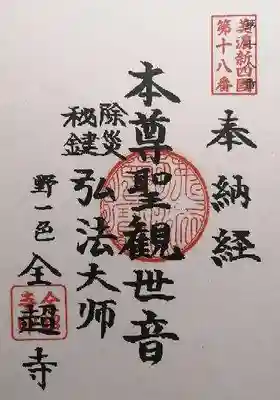 美濃新四國
第十八番
奉納経
本尊聖観世音
除災
秘鍵
弘法大师
野一邑
全超寺